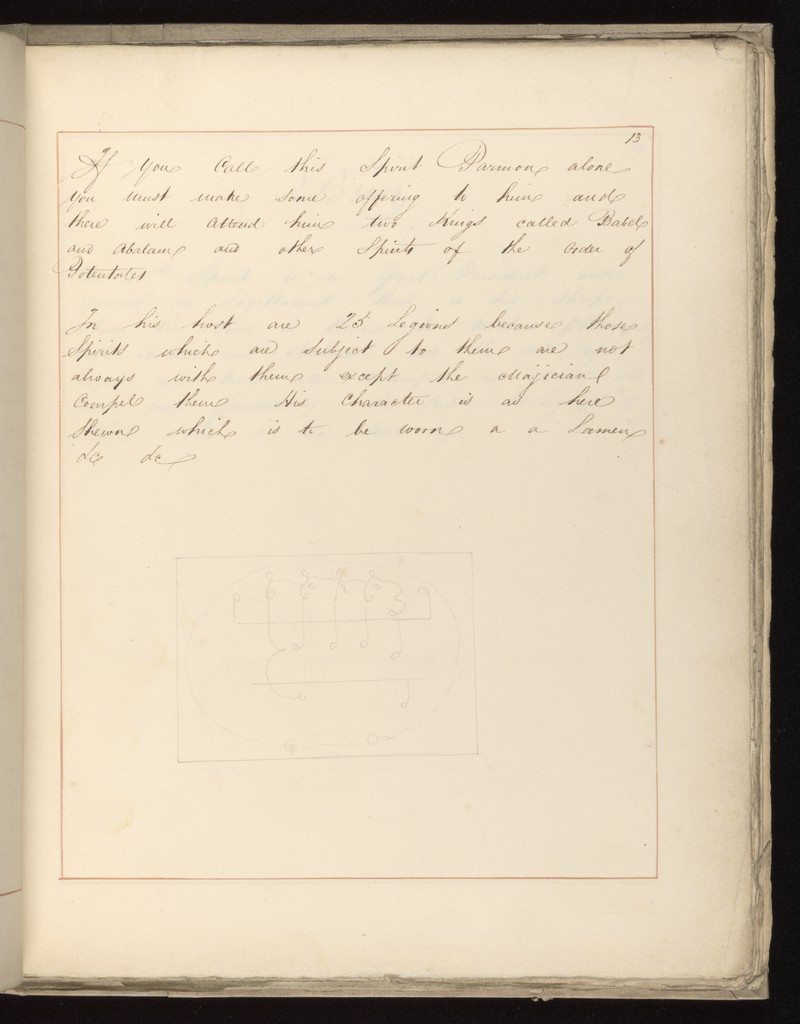 13
If you Call this Spirit Parmon alone
you must make some offering to him and
there will Attend him two Kings called Babel
and Abalam and other Spirits of the Order of
Potentates
In his host are 25 Legions because those
Spirits which are subject to them are not
always with them except the Majician
Compel them His Character is as here
Shewn which is to be worn a a Lamen
&c &c